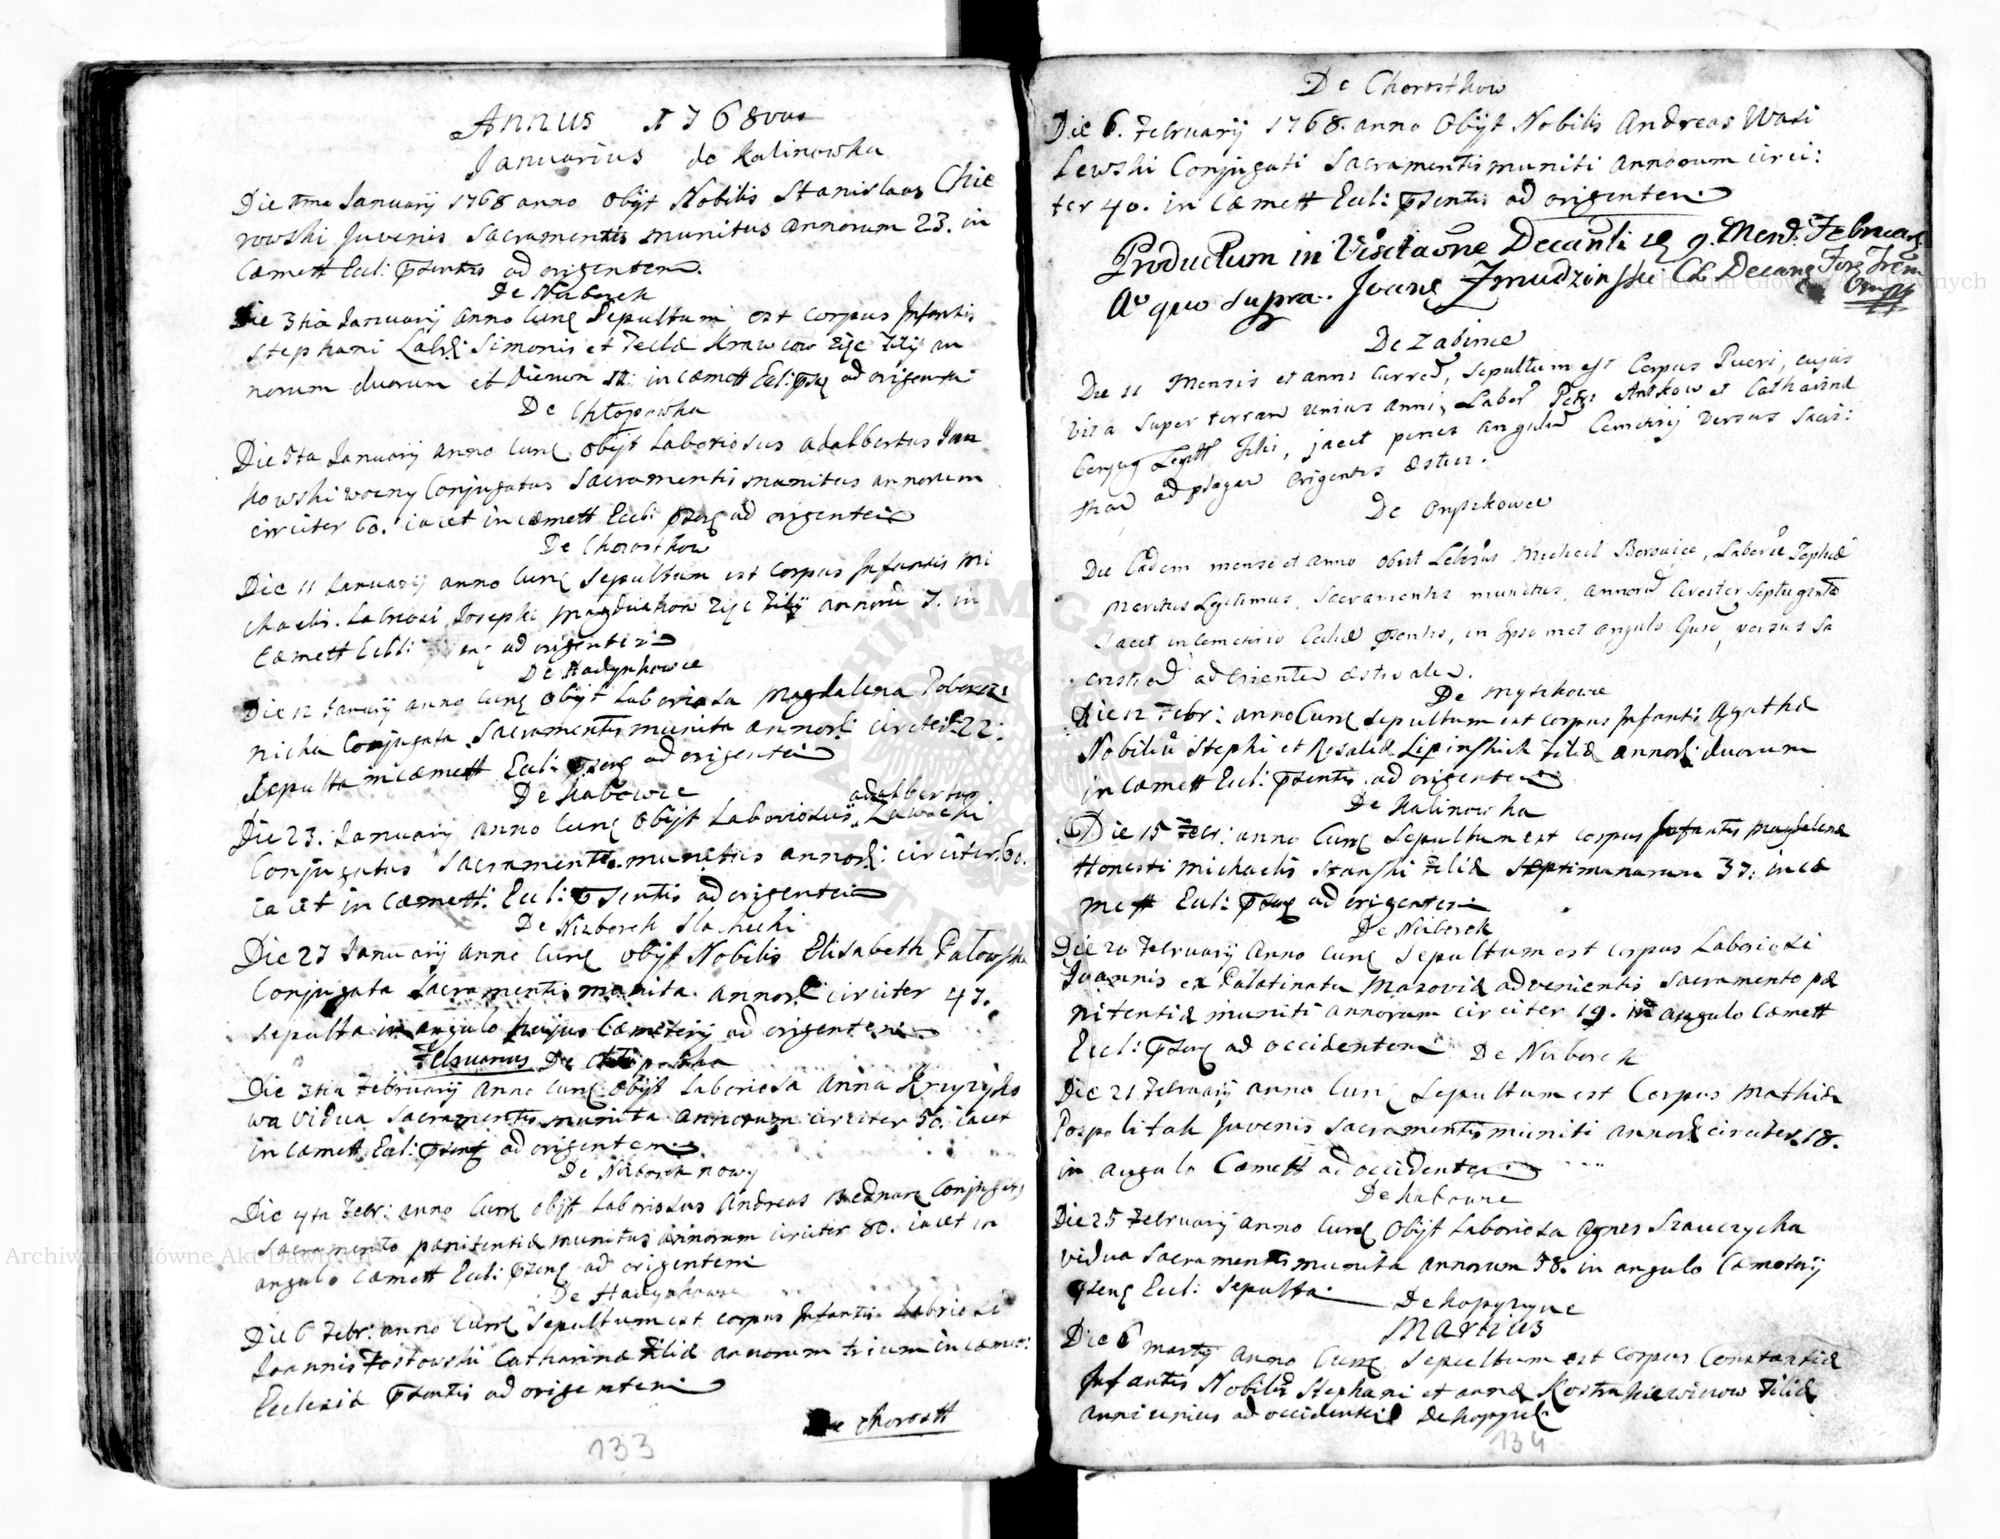 Annus 1768vus
Januarius de Kalinowka
Die 1ma Januarij 1768 anno obijt Nobilis Stanislaus Chie
rowski Juvenis Sacramentis munitus annorum 23. in
Cæmett Eccl: psentis ad origentem.
De Nizborek
Die 3tia Januarij anno Curr Sepultum est corpus Infantis
Stephani Simonis et Teclæ Krawcow filij an
norum duorum et dierum in cæmett Eccl: ad orientem
De Chłopowka
Die 5ta Januarij anno Curr obijt Laboriosus adalbertus Jan
kowski woźny Conjugatus Sacramentis munitus annorum
circiter 60. iacet in cæmett Eccl: ad origentem
De Chorostkow
Die 11 Januarij anno Curr Sepultum est corpus Infantis Mi
chaelis. Labriosi Josephi filij annorū 7. in
Cæmett Eccl: ad origentem
De Hadynkowce
Die 12 Januarij anno Curr obijt Laboriosa Magdalena
nicka Conjugata Sacramentis munita annor: circiter 22.
Sepulta in cæmett Eccl: ad origentem
De Kabowce
adalbertus
Die 23. Januarij anno Curr obijt Laboriosus Zawacki
Conjugatus Sacramentis munitus annor: circiter 60.
iacet in cæmett. Eccl: psentis ad origentem
De Nizborek Slachecki
Die 27 Januarij anno Curr obijt Nobilis Elisabeth Patowska
Conjugata Sacramentis munita annor circiter 47.
Sepulta in angulo hujus Cæmeterij ad origentem
Februarius De Chłopowka
Die 3tia Februarij anno Curr obijt Laboriosa Anna Kruzyko
wa Vidua Sacramentis munita annorum circiter 50. iacet
in cæmett Eccl: ad origentem
De Nizborek nowy
Die 4ta Febr: anno Curr obijt Laboriosus Andreas Bednarz Conjugatus
Sacramento pænitentiæ munitus annorum circiter 80. iacet in
angulo Cæmett Eccl: ad origentem
De Hadynkowce
Die 6 Febr: anno Curr Sepultum est corpus Infantis Labriosi
Joannis Fostowski Catharinæ filiæ annorum trium in cæmet:
Ecclesiæ psentis ad origentem
De Chorostk
133
De Chorostkow
Die 6. Februarij 1768. anno Obijt Nobilis Andreas Wasi
Lewski Conjugati Sacramentis muniti annorum circi:
ter 40. in cæmett Eccl: psentis ad origentem
Productum in Visitaone Decanli 9. Mens. Februar
Ao quo supra. Joane Zmudzinski
De Zabince
Die 11 Mensis et anni Curren, Sepultum est Corpus Pueri, cujus
vita super terram unius anni, Labor Petri Antkow et Catharinæ
Conjug Legitt Filii, jacet penes angulū Cemeterij versus Sacri:
stiam ad plagam Origentis æstiv.
De Oryszkowce
Die Eadem mense et anno obiit Lebrsus Michael Borowiec, Laborie Zophiæ
Maritus Legitimus, Sacramentis munitus, annorū circiter Septuaginta
Jacet in Cemeterio Eccliæ psentis, in Ipso met angulo versus Sa
cristiā ad Orientem æstivalem.
De Myszkowce
Die 12 Febr: anno Curr Sepultum est corpus Infantis Agathæ
Nobiliū Stephi et Rosaliæ Lipinskich filiæ annor: duorum
in Cæmett Eccl: psentis ad origentem
De Kalinowka
Die 15 Febr: anno Curr Sepultum est corpus Infantis Magdalenæ
Honesti Michaelis Stanski filiæ Septimanarum 37: in cæ
mett Eccl: ad origentem
De Nizborek
Die 20 Februarij anno Curr Sepultum est corpus Laboriosi
Joannis ex Palatinatu Mazoviæ advenientis Sacramento pæ
nitentiæ muniti annorum circiter 19. in angulo cæmett
Eccl: ad occidentem De Nizborek
Die 21 Februarij anno Curr Sepultum est Corpus Mathiæ
Pospolitak Juvenis Sacramentis muniti annor circiter 18.
in angulo Cæmett ad occidentem
De Kabowce
Die 25 Februarij anno Curr Obijt Laboriosa Agnes Szewczycha
vidua Sacramentis munita annorum 58. in angulo Cæmeterij
Eccl: Sepulta. De Kopyczynce
Martius
Die 6 Martij anno Curr Sepultum est corpus Constantiæ
Infantis Nobiliū Stephani et Annæ filiæ
anni unius ad occidentem De Kopycz
134
Archiwum Główne Akt Dawnych